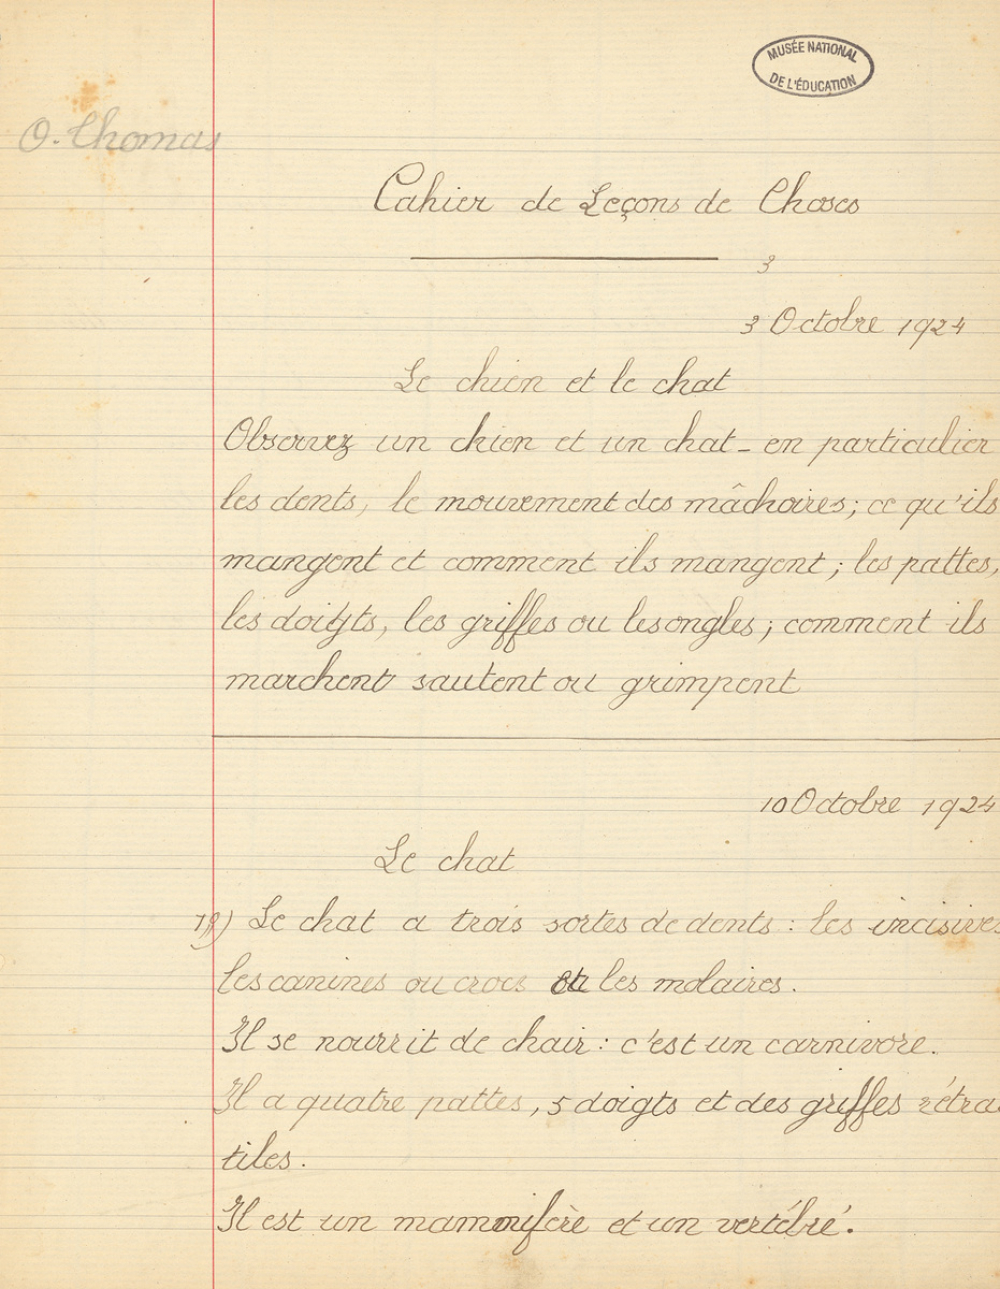 MUSÉE NATIONAL
DE L'ÉDUCATION
O. Thomas
Cahier de Leçons de Choses
3
3 Octobre 1924
Le chien et le chat
Observez un chien et un chat - en particulier
les dents, le mouvement des mâchoires; ce qu'ils
mangent et comment ils mangent; les pattes,
les doigts, les griffes ou les ongles; comment ils
marchent sautent ou grimpent
10 Octobre 1924
Le chat
Le chat a trois sortes de dents : les incisives
les canines ou crocs et les molaires.
Il se nourrit de chair : c'est un carnivore.
Il a quatre pattes, 5 doigts et des griffes rétrac
tiles.
Il est un mammifère et un vertébré.